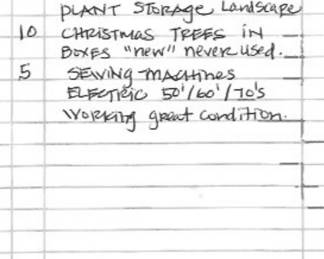 PLANT STORAGE Landscape
10 CHRISTMAS TREES IN
BOXES "new" never used.
5 SEWING MACHINES
ELECTRIC 50'/60'/70's
Working great condition.